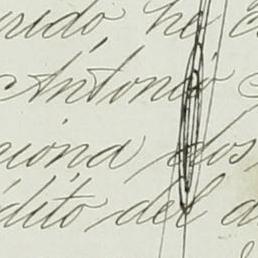 rido, he
Antonio
ciona dos
édito del a